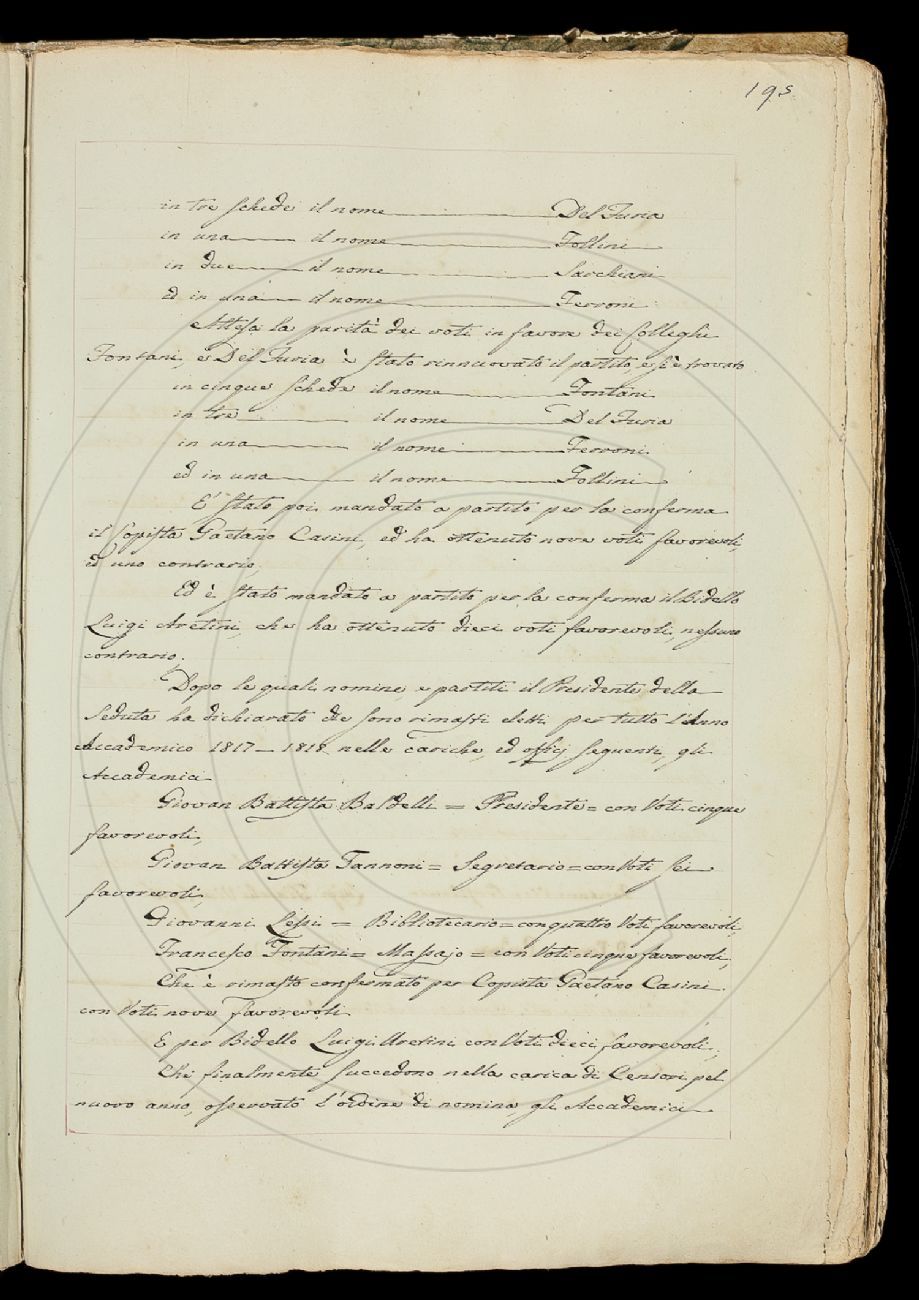 195
in tre schede il nome Del Furia
in una il nome Follini
in due il nome Sarchiani
ed in una il nome Ferroni
Attesa la parità dei voti in favore dei Colleghi
Fontani, e Del Furia è stato rinnuovato il partito, e si è trovato
in cinque schede il nome Fontani
in tre il nome Del Furia
in una il nome Ferroni
ed in una il nome Follini
E' stato poi mandato a partito per la conferma
il Copista Gaetano Casini, ed ha ottenuto nove voti favorevoli,
ed uno contrario;
Ed è stato mandato a partito per la conferma il Bidello
Luigi Aretini, che ha ottenuto dieci voti favorevoli, nessuno
contrario;
Dopo le quali nomine, e partiti il Presidente della
Seduta ha dichiarato che sono rimasti eletti per tutto l'Anno
Accademico 1817–1818 nelle cariche, ed offizj seguenti, gli
Accademici
Giovan Battista Baldelli = Presidente = con Voti cinque
favorevoli;
Giovan Battista Zannoni = Segretario = con Voti sei
favorevoli;
Giovanni Lessi = Bibliotecario = con quattro Voti favorevoli;
Francesco Fontani = Massajo = con Voti cinque favorevoli;
Che è rimasto confermato per Copista Gaetano Casini
con Voti nove favorevoli
E per Bidello Luigi Aretini con Voti dieci favorevoli;
Che finalmente succedono nella carica di Censori pel
nuovo anno, osservato l'ordine di nomina, gli Accademici